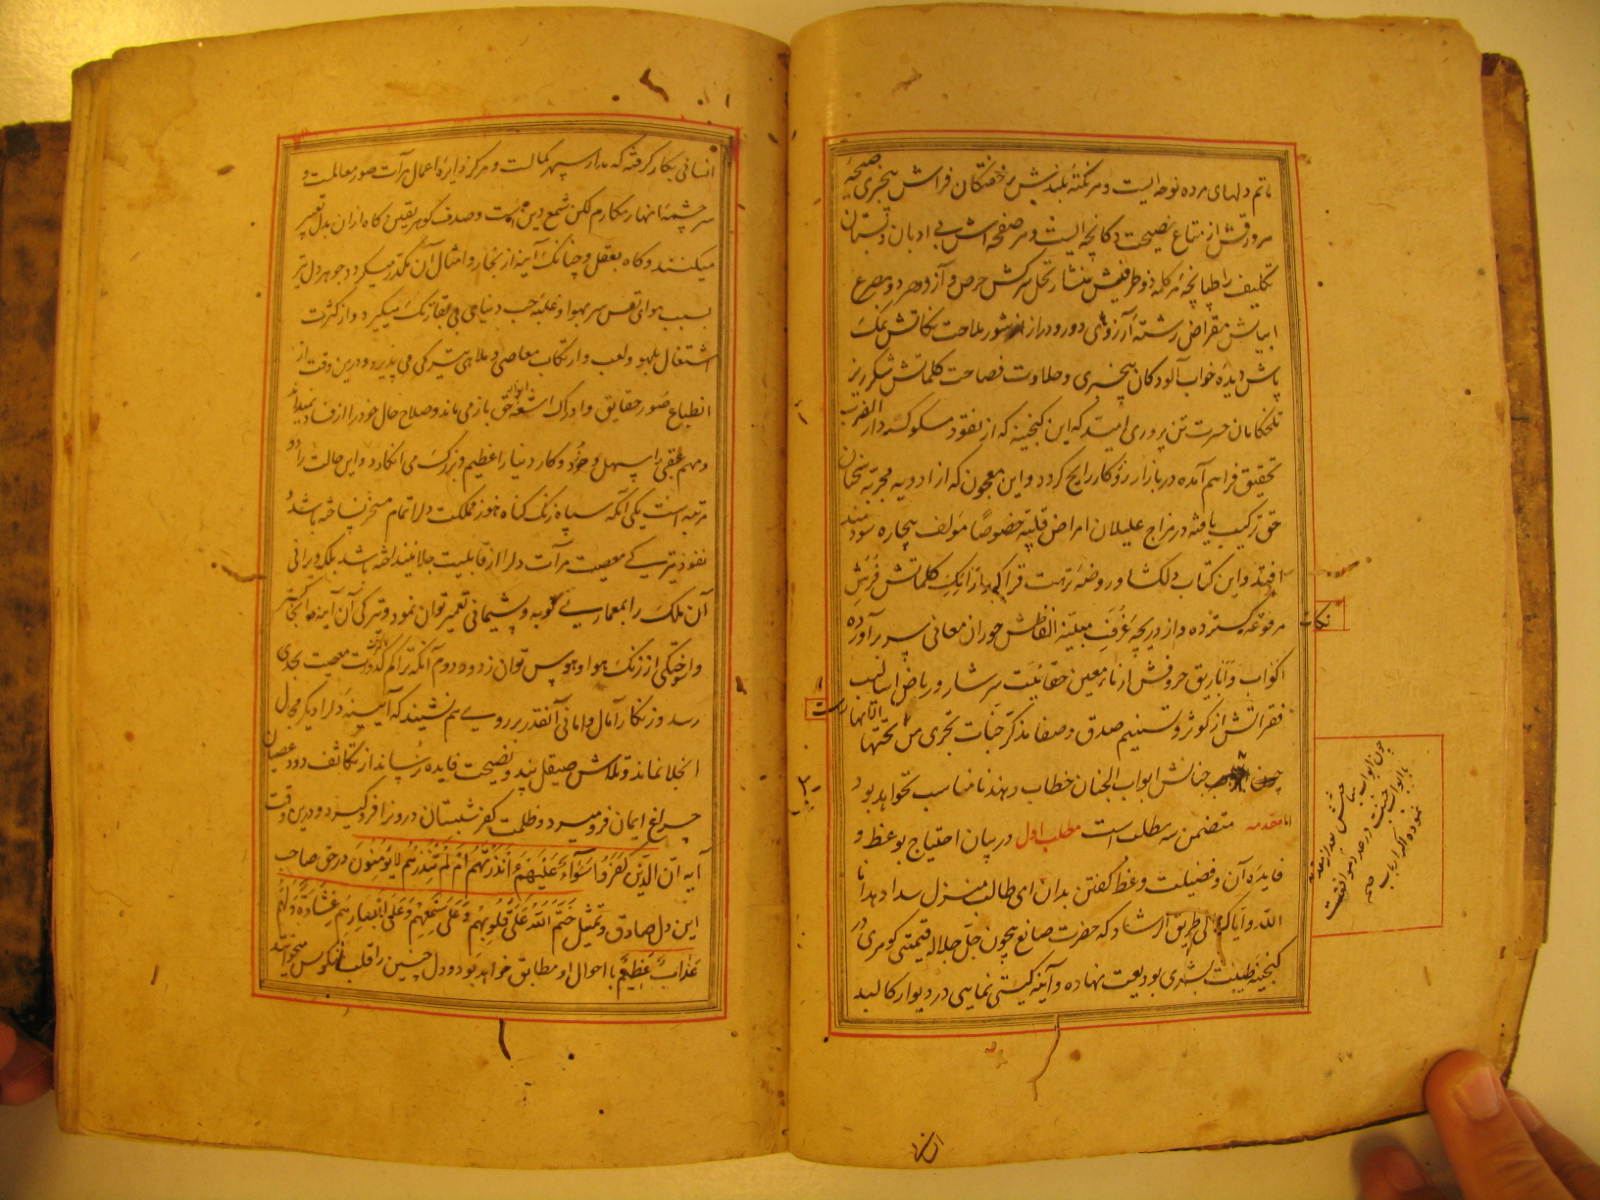 ماتم دلهای مرده نوحه ایست و هر نکته بلندش بر خفتگان فراش بیخبری صیحه
هر ورقش از متاع نصیحت دکانچه ایست و هر صفحه اش بی ادبان دبستان
تکلیف را طپانچه هر کلمه ذو طرفینش منشار نخل سرکش حرص و آز و هر دو مصرع
ابیاتش مقراض رشته آرزوهای دور و دراز از شور ملاحت نکاتش نمک
پاش دیده خواب آلودکان بیخبری و حلاوت فصاحت کلماتش شکرریز
تلخکامان حسرت تن پروری امید که این کنجینه که از نقود مسکوکه دار الضرب
تحقیق فراهم آمده در بازار روزکار رایج کردد و این معجون که از ادویه مجربه سخنان
حق ترکیب یافته در مزاج علیلان امراض قلبیه خصوصا مؤلف بیچاره سودمند
افتد و این کتاب دلکشا و روضه نزهت فزا که بر ارائک کلماتش فرش
مرفوعه نکات کسترده و از دریچه غرف مبنیه الفاظش حوران معانی سر برآورده
اکواب و اباریق حروفش از ماء معین حقانیت سرشار و ریاض اسالیب
فقراتش از کوثر و تسنیم صدق و صفا مذکر جنات تجری من تحتها الانهار است
چون جنانش ابواب الجنان خطاب دهند نامناسب نخواهد بود
اما مقدمه متضمن سه مطلب است مطلب اول در بیان احتیاج بوعظ و
فایده آن و فضیلت وعظ کفتن بدان ای طالب منزل سداد هدانا
الله و ایاکم الی طریق الرشاد که حضرت صانع بیچون جل جلاله قیمتی کوهری در
کنجینه طینت بشری بودیعت نهاده و آینه کیتی نمایی در دیوار کالبد
انسانی بکار کرفته که مدار سپهر کمالت و مرکز دایره اعمال مرآت صور معالمست و
سرچشمه انهار مکارم لکن شمع دین و صدف کوهر یقین و کاه از آن بدل تعبیر
میکنند و کاه بعقل و چنانکه آینه از بخار و امثال آن مکدر میکردد جوهر دل نیز
بسبب هوای نفس سر بهوا و غلبه حب دنیا می بی بقا زنک میکیرد و از کثرت
اشتغال بلهو و لعب و ارتکاب معاصی و ملاهی تیرکی می پذیرد و درین وقت از
انطباع صور حقایق و ادراک اشعه انوار حق باز می ماند و صلاح حال خود را از فساد نمیداند
و مهم عقبی را سهل و خرد و کار دنیا را عظیم و بزرک می انکارد و این حالت را دو
مرتبه است یکی آنکه سپاه زنک کناه هنوز مملکت دل را تمام مسخر نساخته باشد و
نفوذ تیرکی معصیت مرآت دل را از قابلیت جلا نینداخته باشد بلکه ویرانی
آن ملک را بمعماری توبه و پشیمانی تعمیر توان نمود و تیرکی آن آینه را
و سوختکی از زنک هوا و هوس توان زدود دوم آنکه تراکم کدورت معصیت بحدی
رسد و زنکار آمال و امانی آنقدر بر روی هم نشیند که آیینه دل را دیکر مجال
انجلا نماند و تلاش صیقل پند و نصیحت فایده نرساند از تکاثف دود عصیان
چراغ ایمان فرو میرد و ظلمت کفر شبستان درون را فرو کیرد و درین وقت
آیه ان الذین کفروا سواء علیهم أانذرتهم ام لم تنذرهم لا یؤمنون در حق صاحب
این دل صادق و تمثیل ختم الله علی قلوبهم و علی سمعهم و علی ابصارهم غشاوة و لهم
عذاب عظیم با احوال او مطابق خواهد بود و دل چنین را قلب منکوس میخوانند